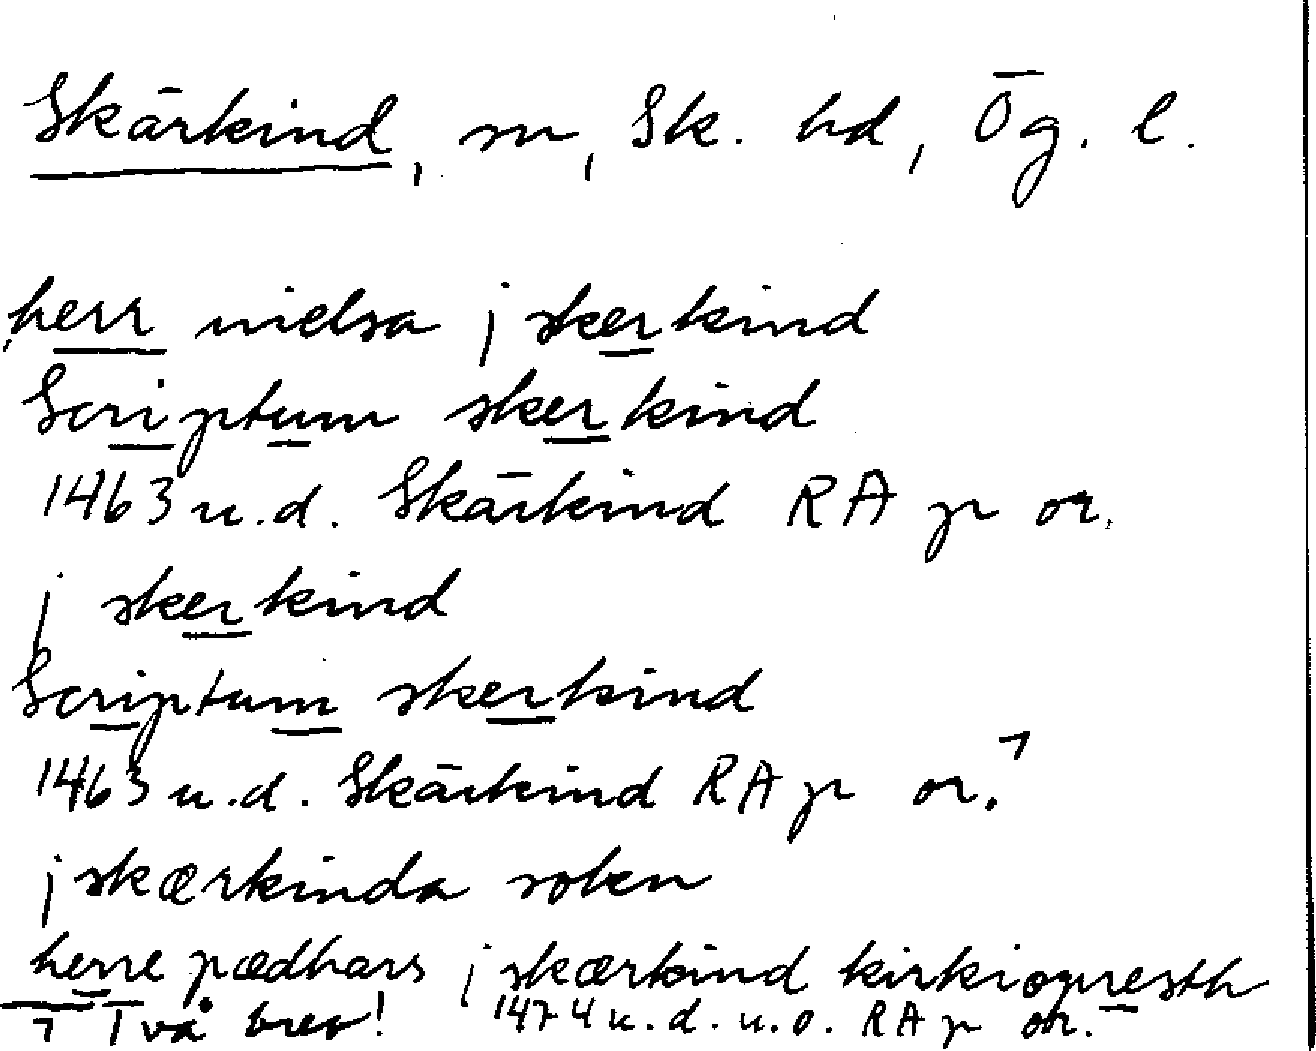 Skärkind, sn, Sk. hd, Ög. l.
herr nielsa j skerkind
Scriptum skerkind
1463 u.d. Skärkind RA p or.
j skerkind
Scriptum skerkind
1463 u.d. Skärkind RA p or.⁊
j skærkinda sokn
herre pædhars j skærkind kirkiopresth
⁊ Två brev! 1474 u.d.u.o. RA p or.